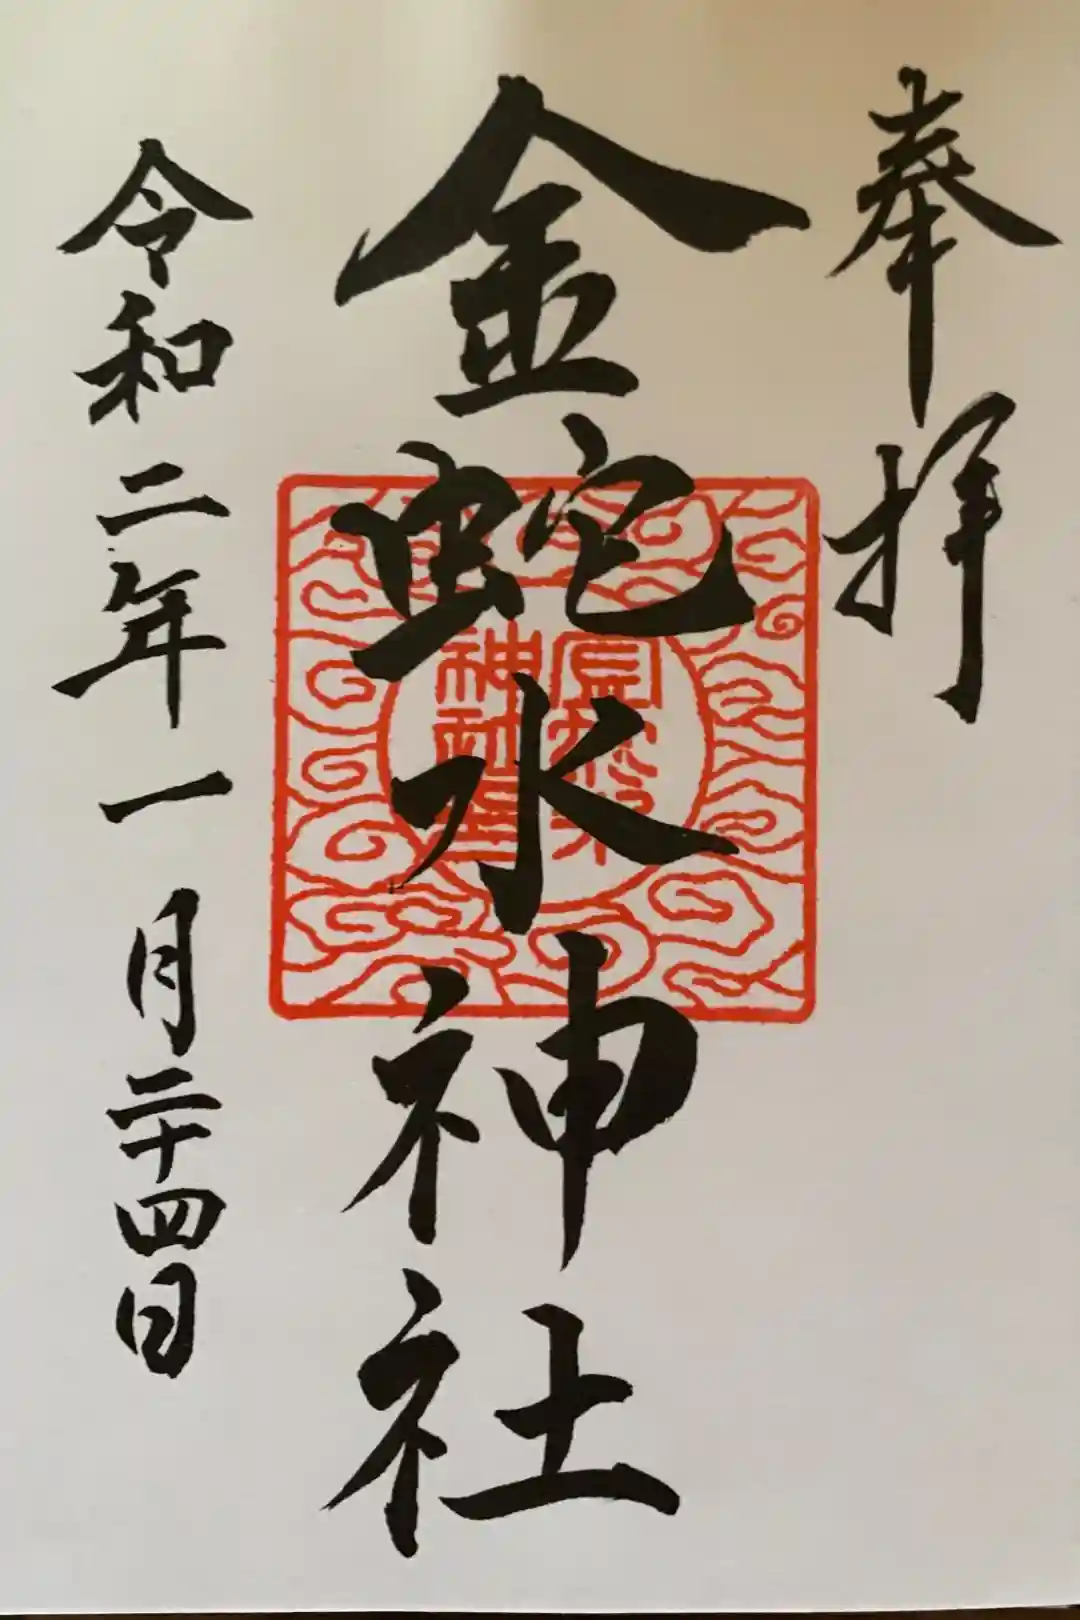 奉拝
金蛇水神社
令和二年一月二十四日